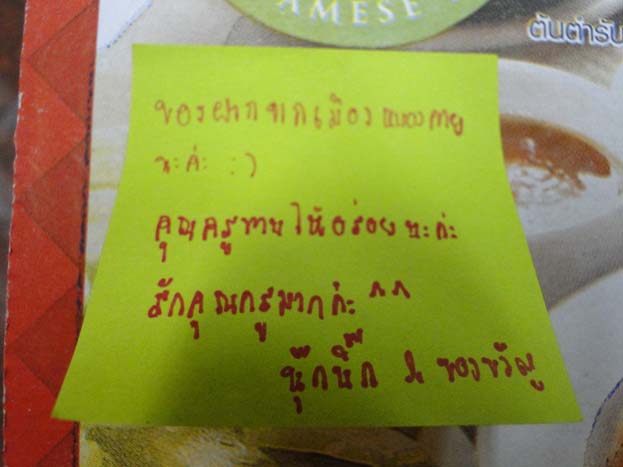 AMESE
ต้นตำรับ
ของฝากจากเมืองหนองคาย
นะค่ะ :)
คุณครูทานให้อร่อยนะค่ะ
รักคุณครูมากค่ะ ^^
นุ๊กนิ๊ก & ของขวัญ